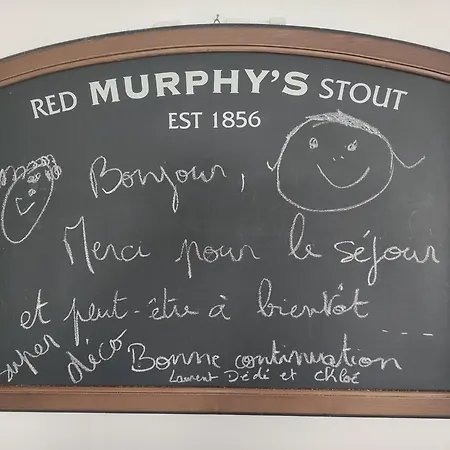 RED MURPHY'S STOUT
EST 1856
Bonjour,
Merci pour le séjour
et peut-être à bientôt ----
super déco
Bonne continuation
Laurent Dédé et Chloé